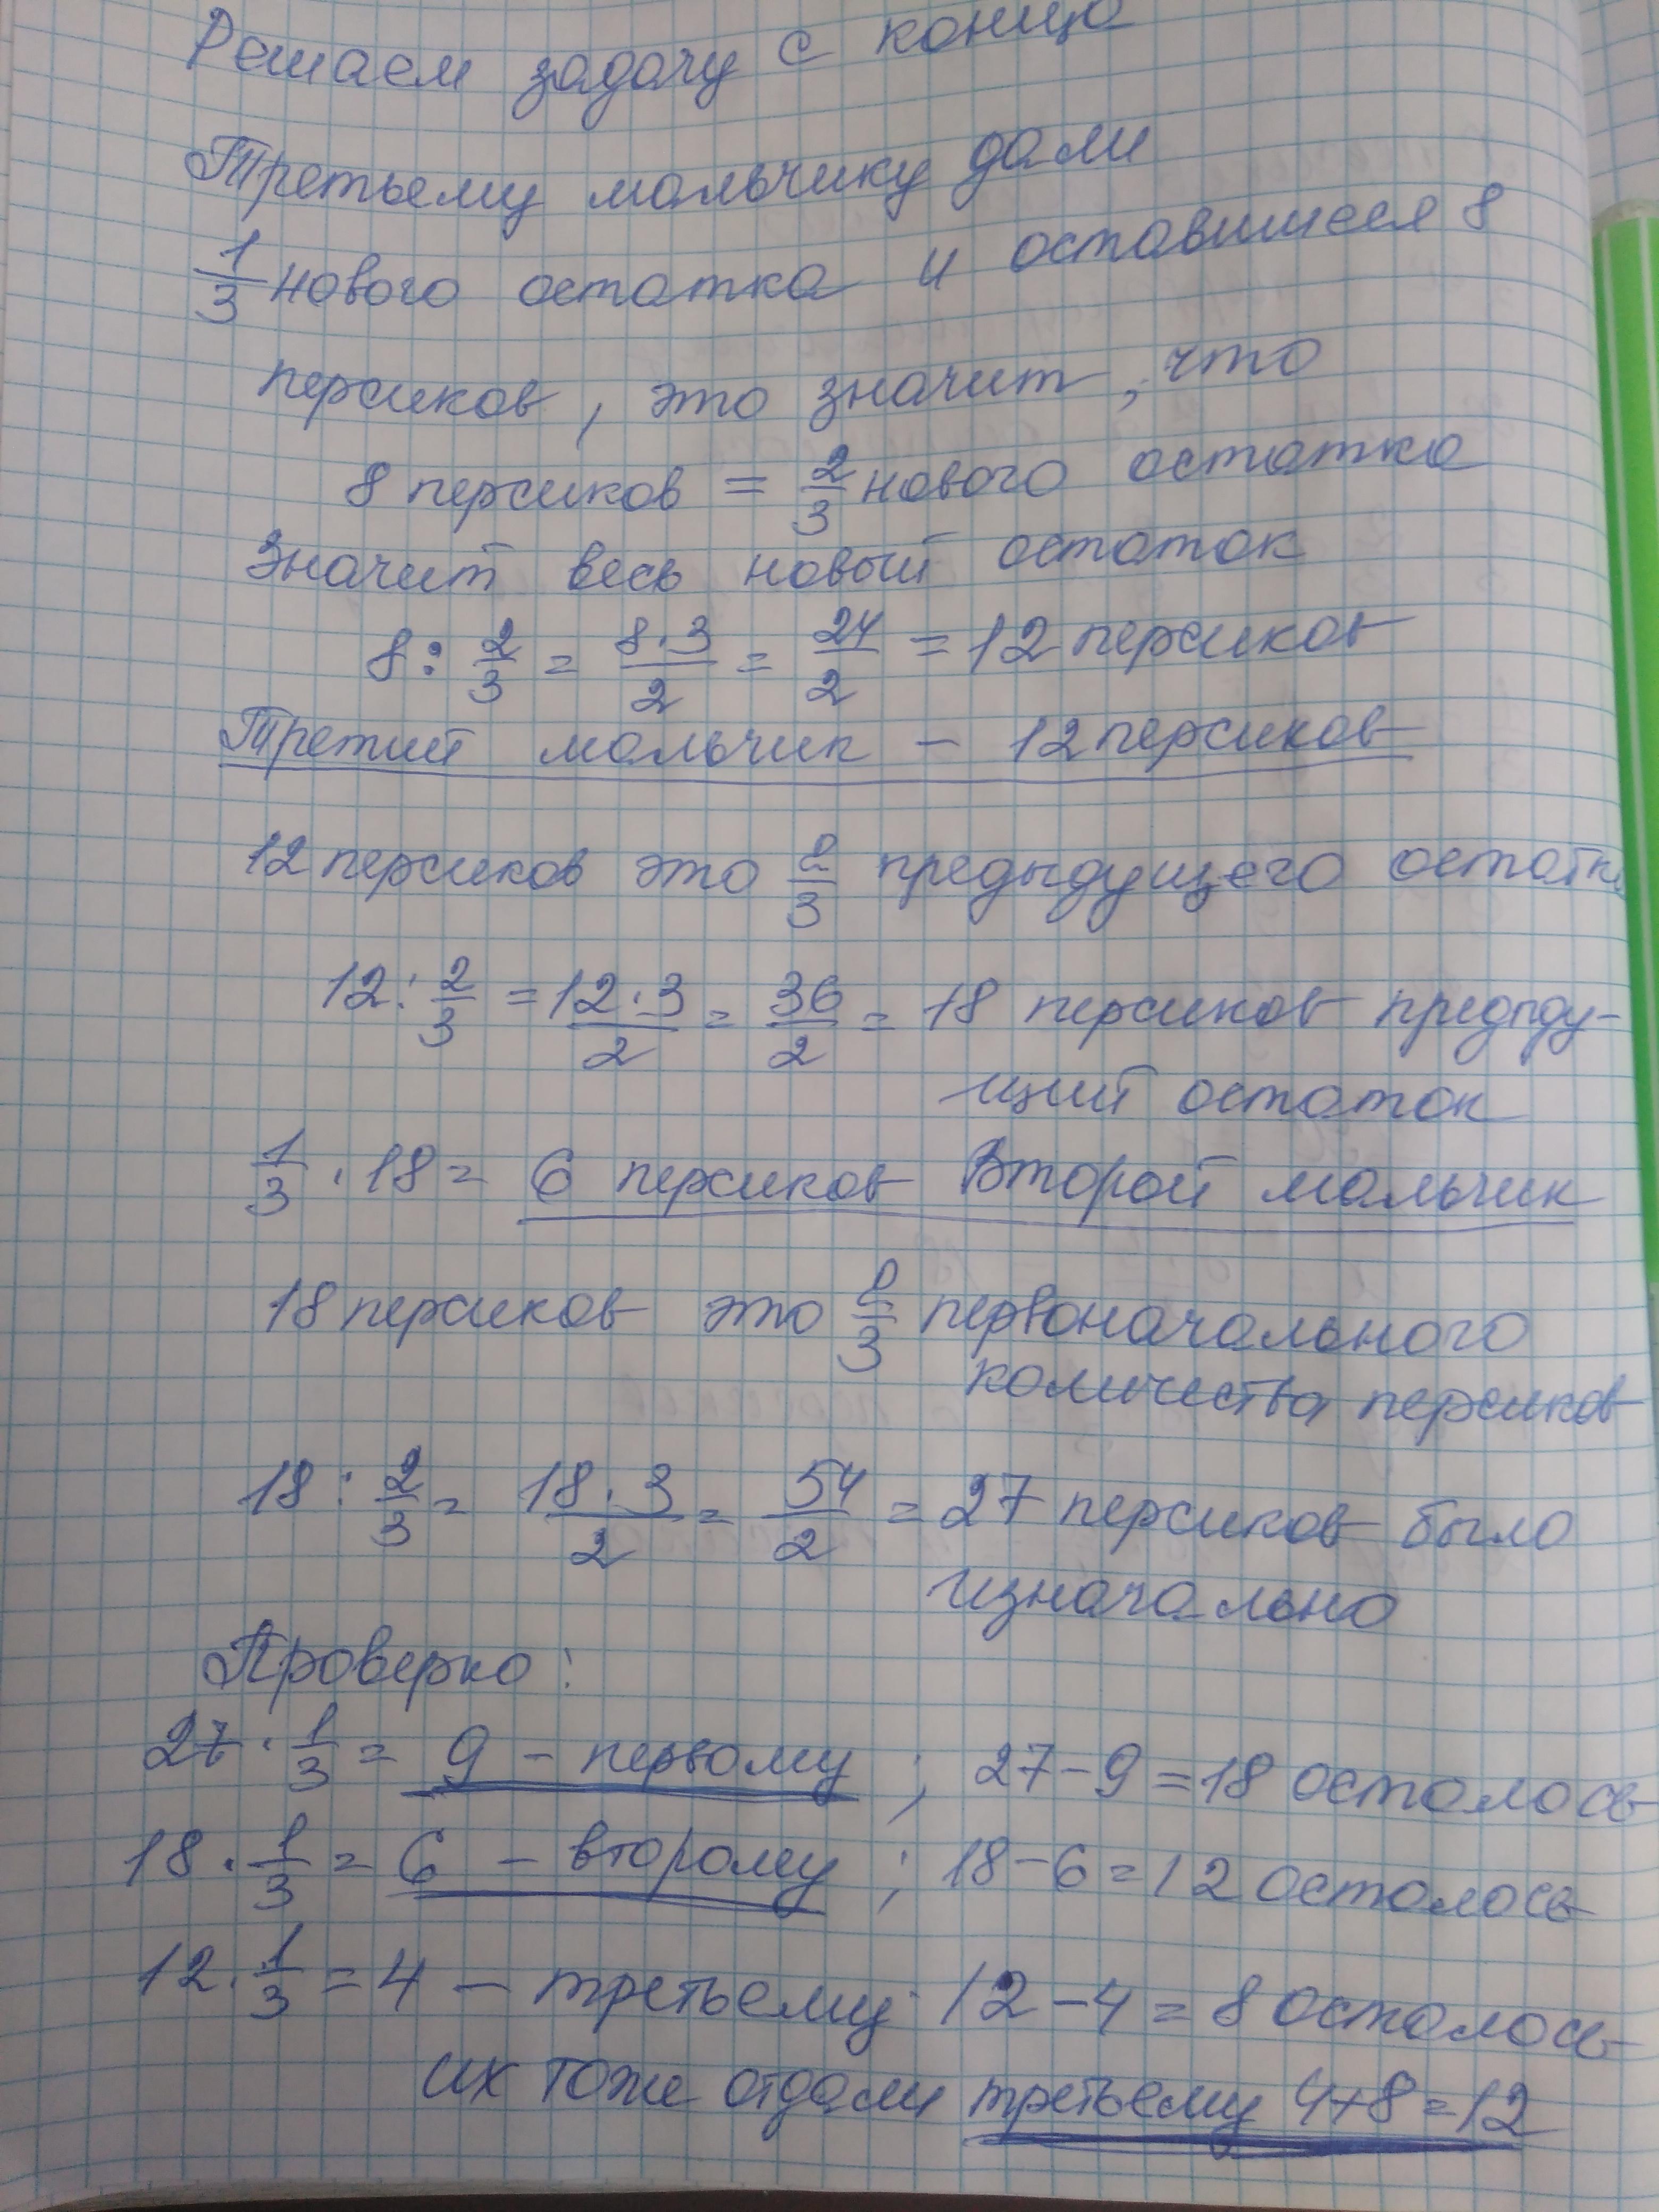 Решаем задачу с конца
Третьему мальчику дали
1/3 нового остатка и оставшиеся 8
персиков, это значит, что
8 персиков = 2/3 нового остатка
Значит весь новый остаток
8 : 2/3 = 8·3/2 = 24/2 = 12 персиков
Третий мальчик – 12 персиков
12 персиков это 2/3 предыдущего остатка
12 : 2/3 = 12·3/2 = 36/2 = 18 персиков предыду-
щий остаток
1/3 · 18 = 6 персиков Второй мальчик
18 персиков это 2/3 первоначального
количества персиков
18 : 2/3 = 18·3/2 = 54/2 = 27 персиков было
изначально
Проверка:
27 · 1/3 = 9 – первому ; 27 – 9 = 18 осталось
18 · 1/3 = 6 – второму ; 18 – 6 = 12 осталось
12 · 1/3 = 4 – третьему 12 – 4 = 8 осталось
их тоже отдали третьему 4+8=12